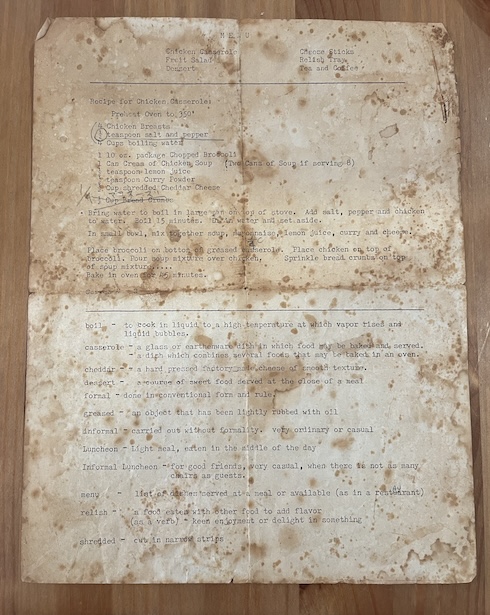 MENU
Chicken Casserole Cheese Sticks
Fruit Salad Relish Tray
Dessert Tea and Coffee
Recipe for Chicken Casserole:
Preheat Oven to 350'
Chicken Breasts
teaspoon salt and pepper
Cups boiling water
1 10 oz. package Chopped Broccoli
Can Cream of Chicken Soup (Two Cans of Soup if serving 8)
teaspoon lemon juice
teaspoon Curry Powder
Cup shredded Cheddar Cheese
Cup Bread Crumbs
Bring water to boil in large pan on top of stove. Add salt, pepper and chicken
to water. Boil 15 minutes. Drain water and set aside.
In small bowl, mix together soup, mayonnaise, lemon juice, curry and cheese.
Place broccoli on bottom of greased casserole. Place chicken on top of
broccoli. Pour soup mixture over chicken, Sprinkle bread crumbs on top
of soup mixture.....
Bake in oven for minutes.
boil - to cook in liquid to a high temperature at which vapor rises and
liquid bubbles.
casserole - a glass or earthenware dish in which food may be baked and served.
- a dish which combines several foods that may be baked in an oven.
cheddar - a hard pressed factory made cheese of smooth texture.
dessert - a course of sweet food served at the close of a meal
formal - done in conventional form and rule.
greased - an object that has been lightly rubbed with oil
informal - carried out without formality. very ordinary or casual
Luncheon - Light meal, eaten in the middle of the day
Informal Luncheon - for good friends, very casual, when there is not as many
chairs as guests.
menu - list of dishes served at a meal or available (as in a restaurant)
relish - a food eaten with other food to add flavor
(as a verb) - keen enjoyment or delight in something
shredded - cut in narrow strips